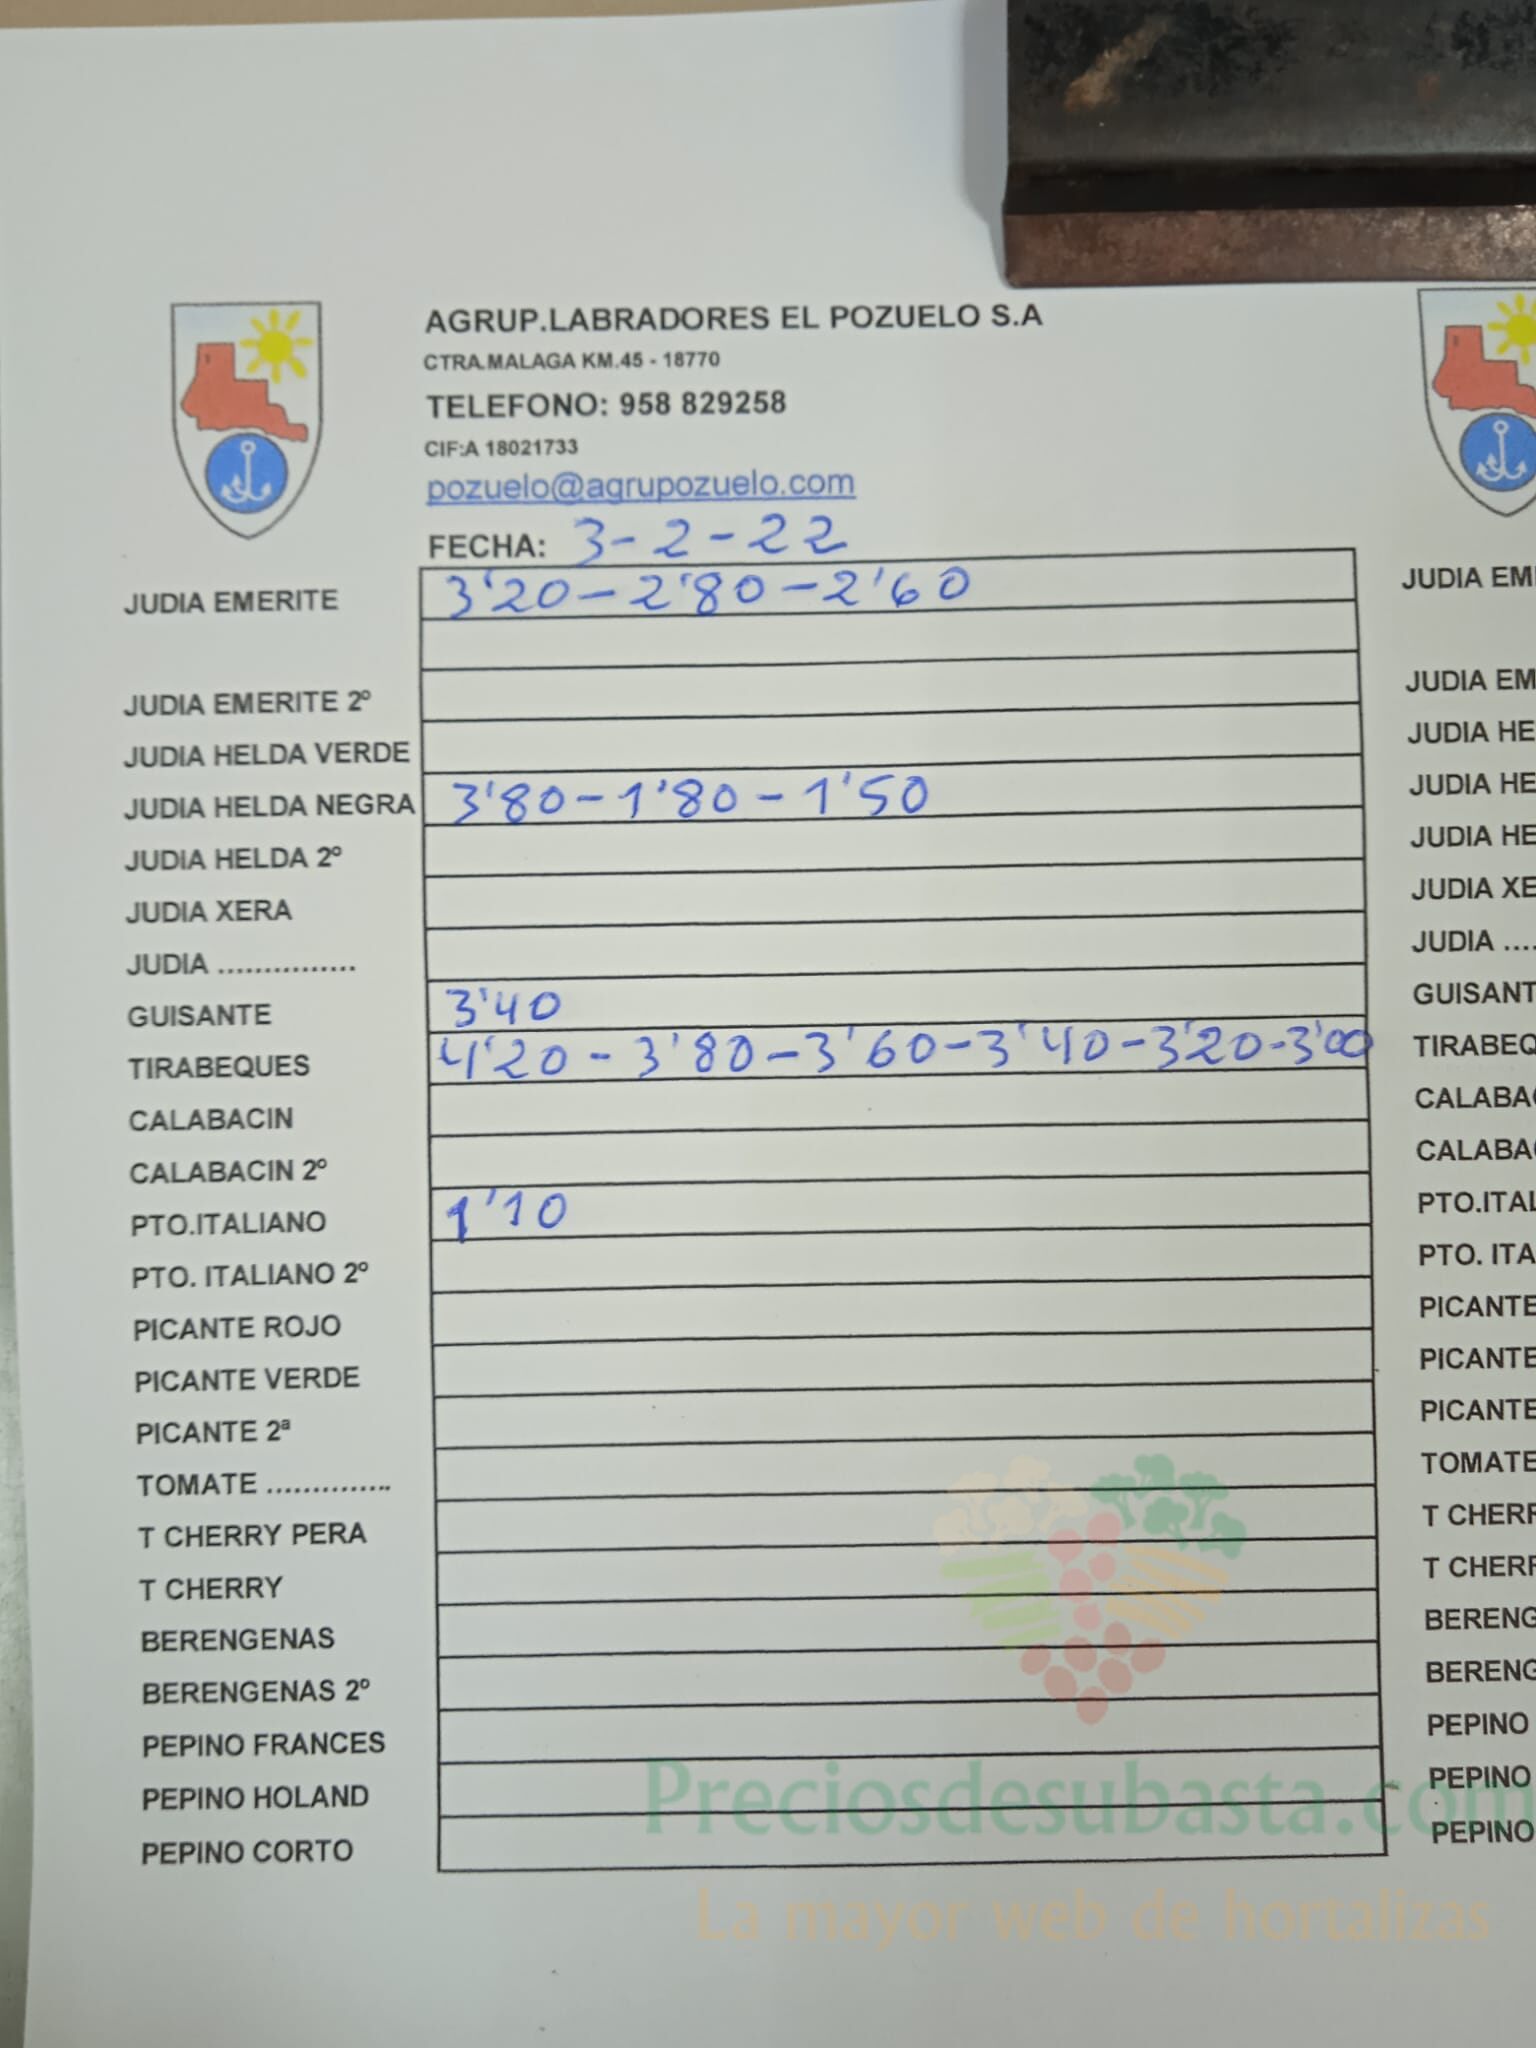 AGRUP.LABRADORES EL POZUELO S.A
CTRA.MALAGA KM.45 - 18770
TELEFONO: 958 829258
CIF:A 18021733
pozuelo@agrupozuelo.com
FECHA: 3-2-22
JUDIA EMERITE 3'20-2'80-2'60
JUDIA EMERITE 2º
JUDIA HELDA VERDE
JUDIA HELDA NEGRA 3'80-1'80-1'50
JUDIA HELDA 2º
JUDIA XERA
JUDIA ...............
GUISANTE 3'40
TIRABEQUES 4'20-3'80-3'60-3'40-3'20-3'00
CALABACIN
CALABACIN 2º
PTO.ITALIANO 1'10
PTO. ITALIANO 2º
PICANTE ROJO
PICANTE VERDE
PICANTE 2ª
TOMATE ..............
T CHERRY PERA
T CHERRY
BERENGENAS
BERENGENAS 2º
PEPINO FRANCES
PEPINO HOLAND
PEPINO CORTO
JUDIA EM
JUDIA EM
JUDIA HE
JUDIA HE
JUDIA HE
JUDIA XE
JUDIA ....
GUISANT
TIRABEQ
CALABA
CALABA
PTO.ITAL
PTO. ITA
PICANTE
PICANTE
PICANTE
TOMATE
T CHERR
T CHERR
BERENG
BERENG
PEPINO
PEPINO
PEPINO
Preciosdesubasta.com
La mayor web de hortalizas